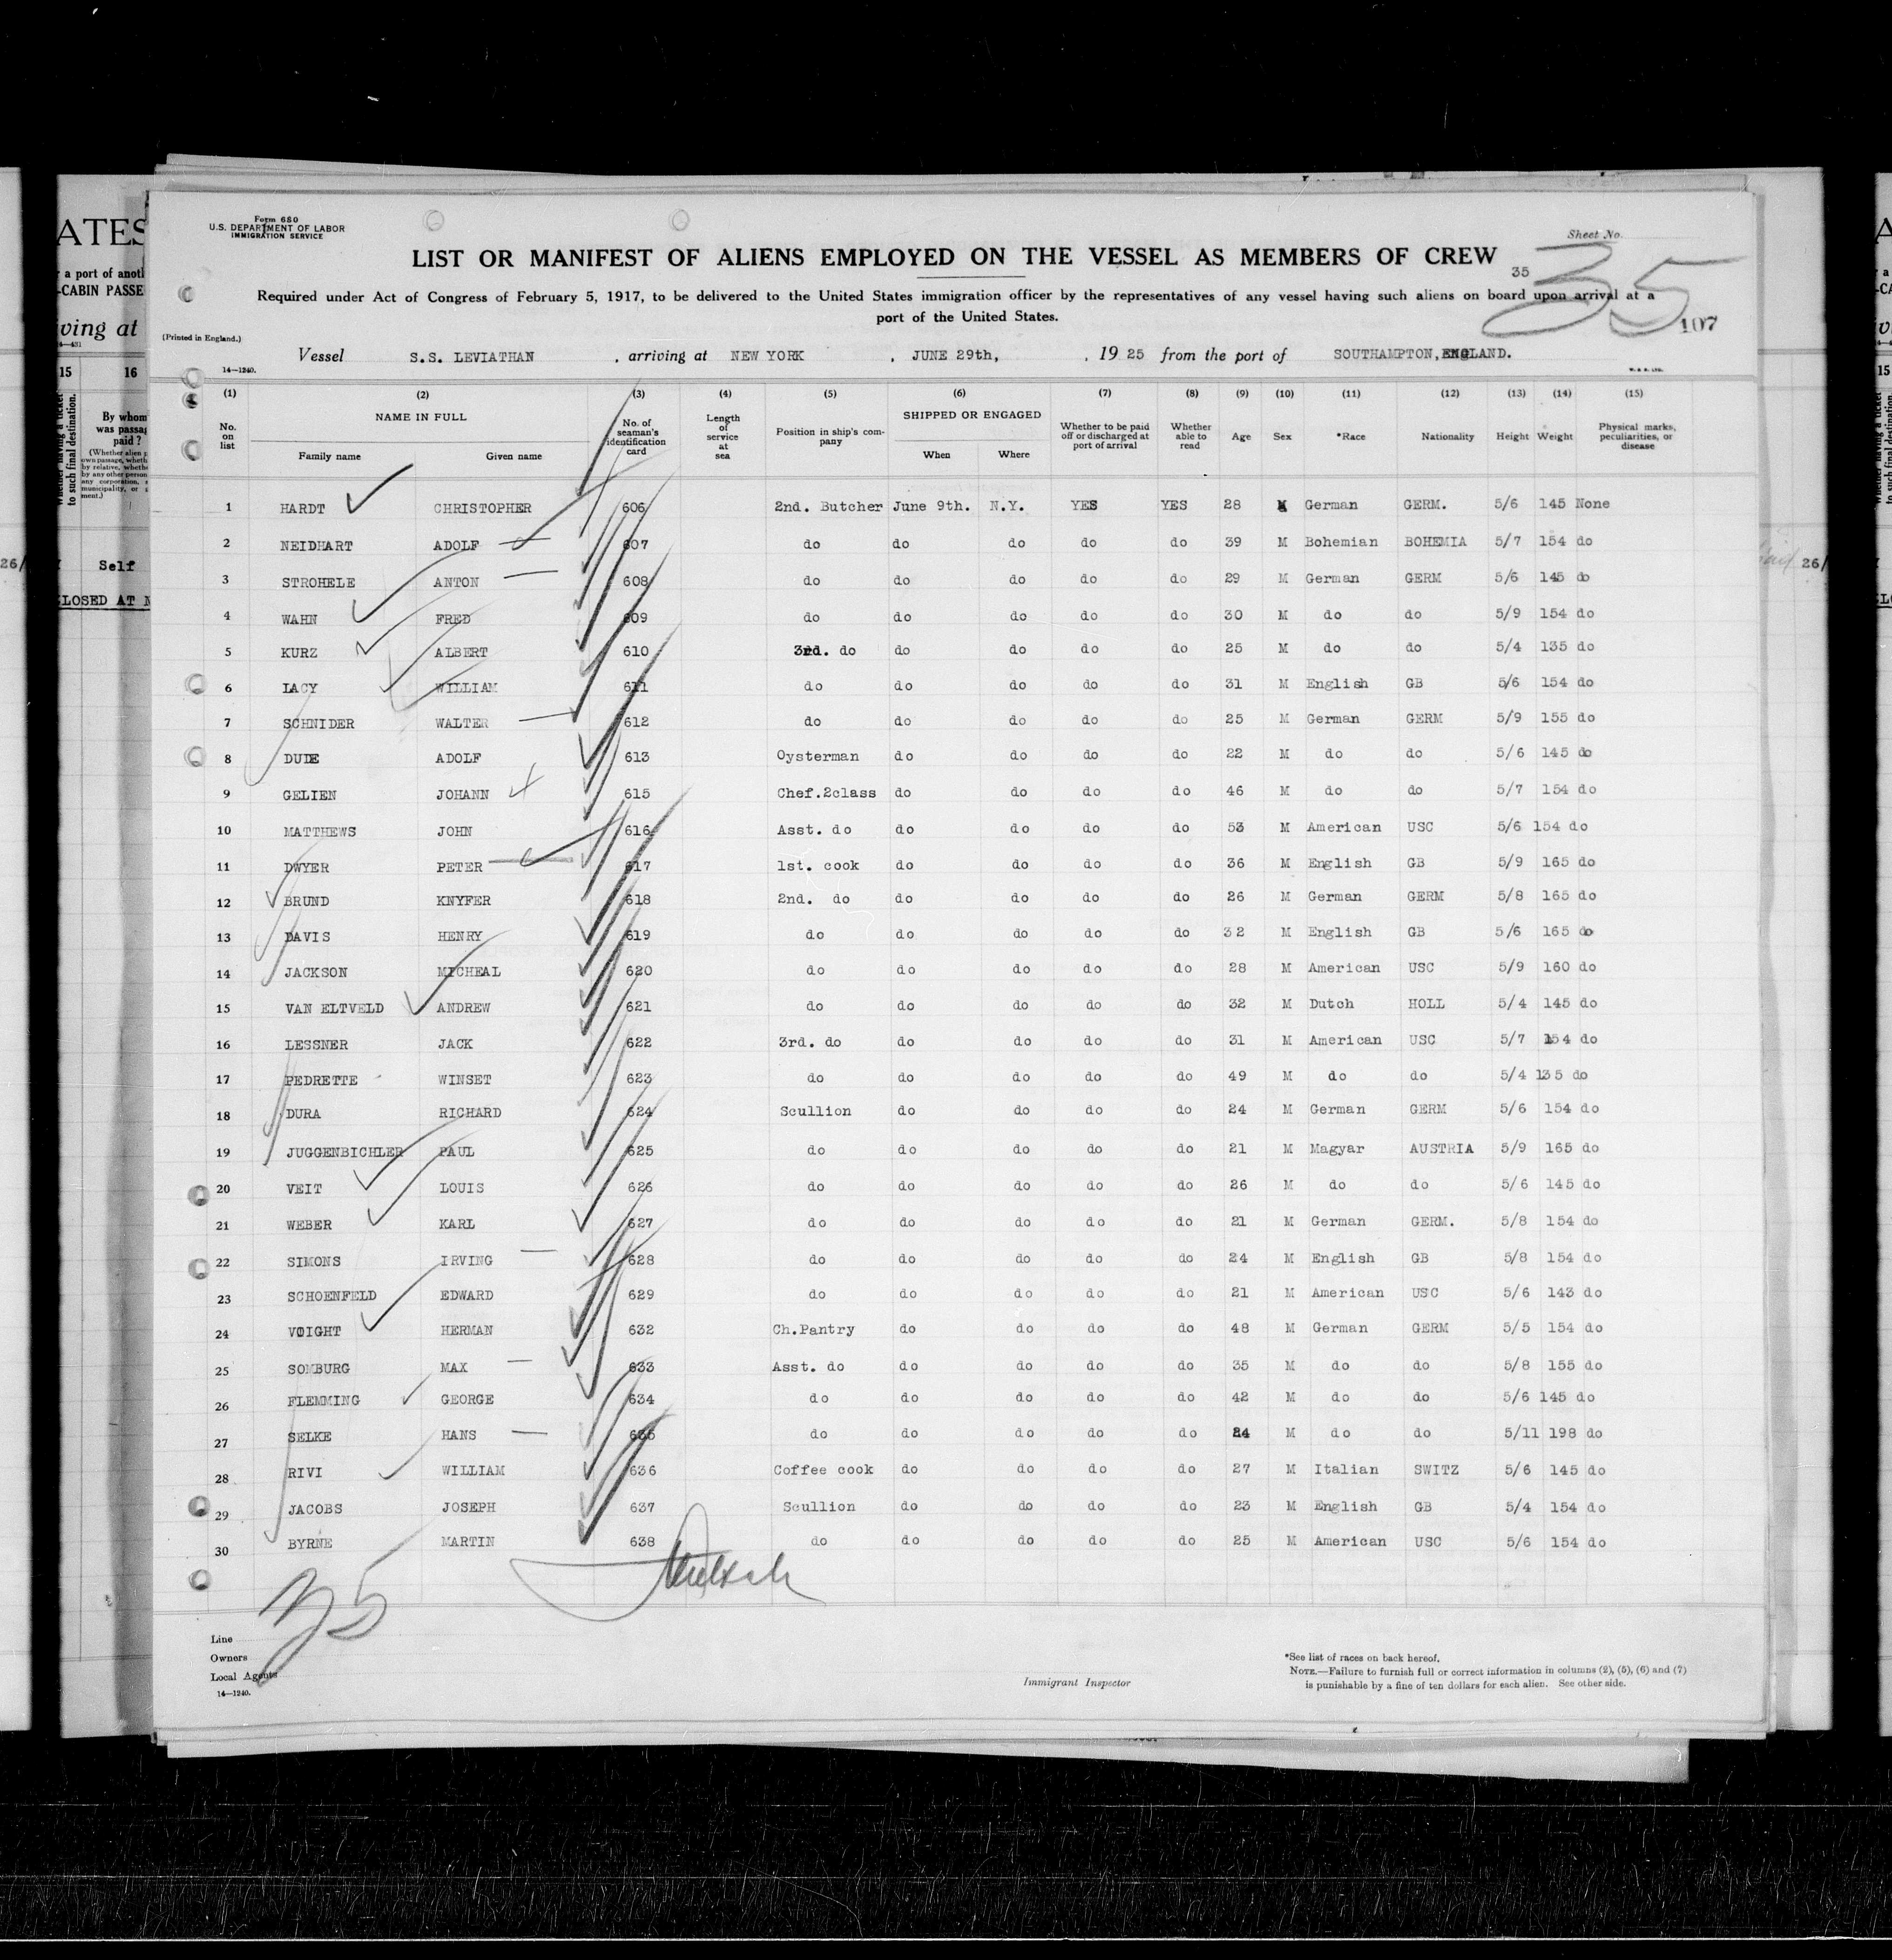 Form 680
U.S. DEPARTMENT OF LABOR
IMMIGRATION SERVICE
Sheet No.
LIST OR MANIFEST OF ALIENS EMPLOYED ON THE VESSEL AS MEMBERS OF CREW
35
35
Required under Act of Congress of February 5, 1917, to be delivered to the United States immigration officer by the representatives of any vessel having such aliens on board upon arrival at a
port of the United States.
107
(Printed in England.)
Vessel S.S. LEVIATHAN , arriving at NEW YORK , JUNE 29th, , 19 25 from the port of SOUTHAMPTON, ENGLAND.
14—1240.
(1) (2) (3) (4) (5) (6) (7) (8) (9) (10) (11) (12) (13) (14) (15)
No. on list NAME IN FULL Family name Given name No. of seaman's identification card Length of service at sea Position in ship's company SHIPPED OR ENGAGED When Where Whether to be paid off or discharged at port of arrival Whether able to read Age Sex *Race Nationality Height Weight Physical marks, peculiarities, or disease
1 HARDT CHRISTOPHER 606 2nd. Butcher June 9th. N.Y. YES YES 28 M German GERM. 5/6 145 None
2 NEIDHART ADOLF 607 do do do do do 39 M Bohemian BOHEMIA 5/7 154 do
3 STROHELE ANTON 608 do do do do do 29 M German GERM 5/6 145 do
4 WAHN FRED 609 do do do do do 30 M do do 5/9 154 do
5 KURZ ALBERT 610 3rd. do do do do do 25 M do do 5/4 135 do
6 LACY WILLIAM 611 do do do do do 31 M English GB 5/6 154 do
7 SCHNIDER WALTER 612 do do do do do 25 M German GERM 5/9 155 do
8 DUDE ADOLF 613 Oysterman do do do do 22 M do do 5/6 145 do
9 GELIEN JOHANN 615 Chef.2class do do do do 46 M do do 5/7 154 do
10 MATTHEWS JOHN 616 Asst. do do do do do 53 M American USC 5/6 154 do
11 DWYER PETER 617 1st. cook do do do do 36 M English GB 5/9 165 do
12 BRUND KNYFER 618 2nd. do do do do do 26 M German GERM 5/8 165 do
13 DAVIS HENRY 619 do do do do do 32 M English GB 5/6 165 do
14 JACKSON MICHEAL 620 do do do do do 28 M American USC 5/9 160 do
15 VAN ELTVELD ANDREW 621 do do do do do 32 M Dutch HOLL 5/4 145 do
16 LESSNER JACK 622 3rd. do do do do do 31 M American USC 5/7 154 do
17 PEDRETTE WINSET 623 do do do do do 49 M do do 5/4 135 do
18 DURA RICHARD 624 Scullion do do do do 24 M German GERM 5/6 154 do
19 JUGGENBICHLER PAUL 625 do do do do do 21 M Magyar AUSTRIA 5/9 165 do
20 VEIT LOUIS 626 do do do do do 26 M do do 5/6 145 do
21 WEBER KARL 627 do do do do do 21 M German GERM. 5/8 154 do
22 SIMONS IRVING 628 do do do do do 24 M English GB 5/8 154 do
23 SCHOENFELD EDWARD 629 do do do do do 21 M American USC 5/6 143 do
24 VOIGHT HERMAN 632 Ch.Pantry do do do do 48 M German GERM 5/5 154 do
25 SOMBURG MAX 633 Asst. do do do do do 35 M do do 5/8 155 do
26 FLEMMING GEORGE 634 do do do do do 42 M do do 5/6 145 do
27 SELKE HANS 635 do do do do do 24 M do do 5/11 198 do
28 RIVI WILLIAM 636 Coffee cook do do do do 27 M Italian SWITZ 5/6 145 do
29 JACOBS JOSEPH 637 Scullion do do do do 23 M English GB 5/4 154 do
30 BYRNE MARTIN 638 do do do do do 25 M American USC 5/6 154 do
Line
Owners
Local Agents
14—1240.
Immigrant Inspector
*See list of races on back hereof.
NOTE.—Failure to furnish full or correct information in columns (2), (5), (6) and (7)
is punishable by a fine of ten dollars for each alien. See other side.
ATES
a port of anoth
-CABIN PASSE
iving at
4—431
15 16
to such final destination.
By whom was passage paid ?
26/
Self
LOSED AT N
26/